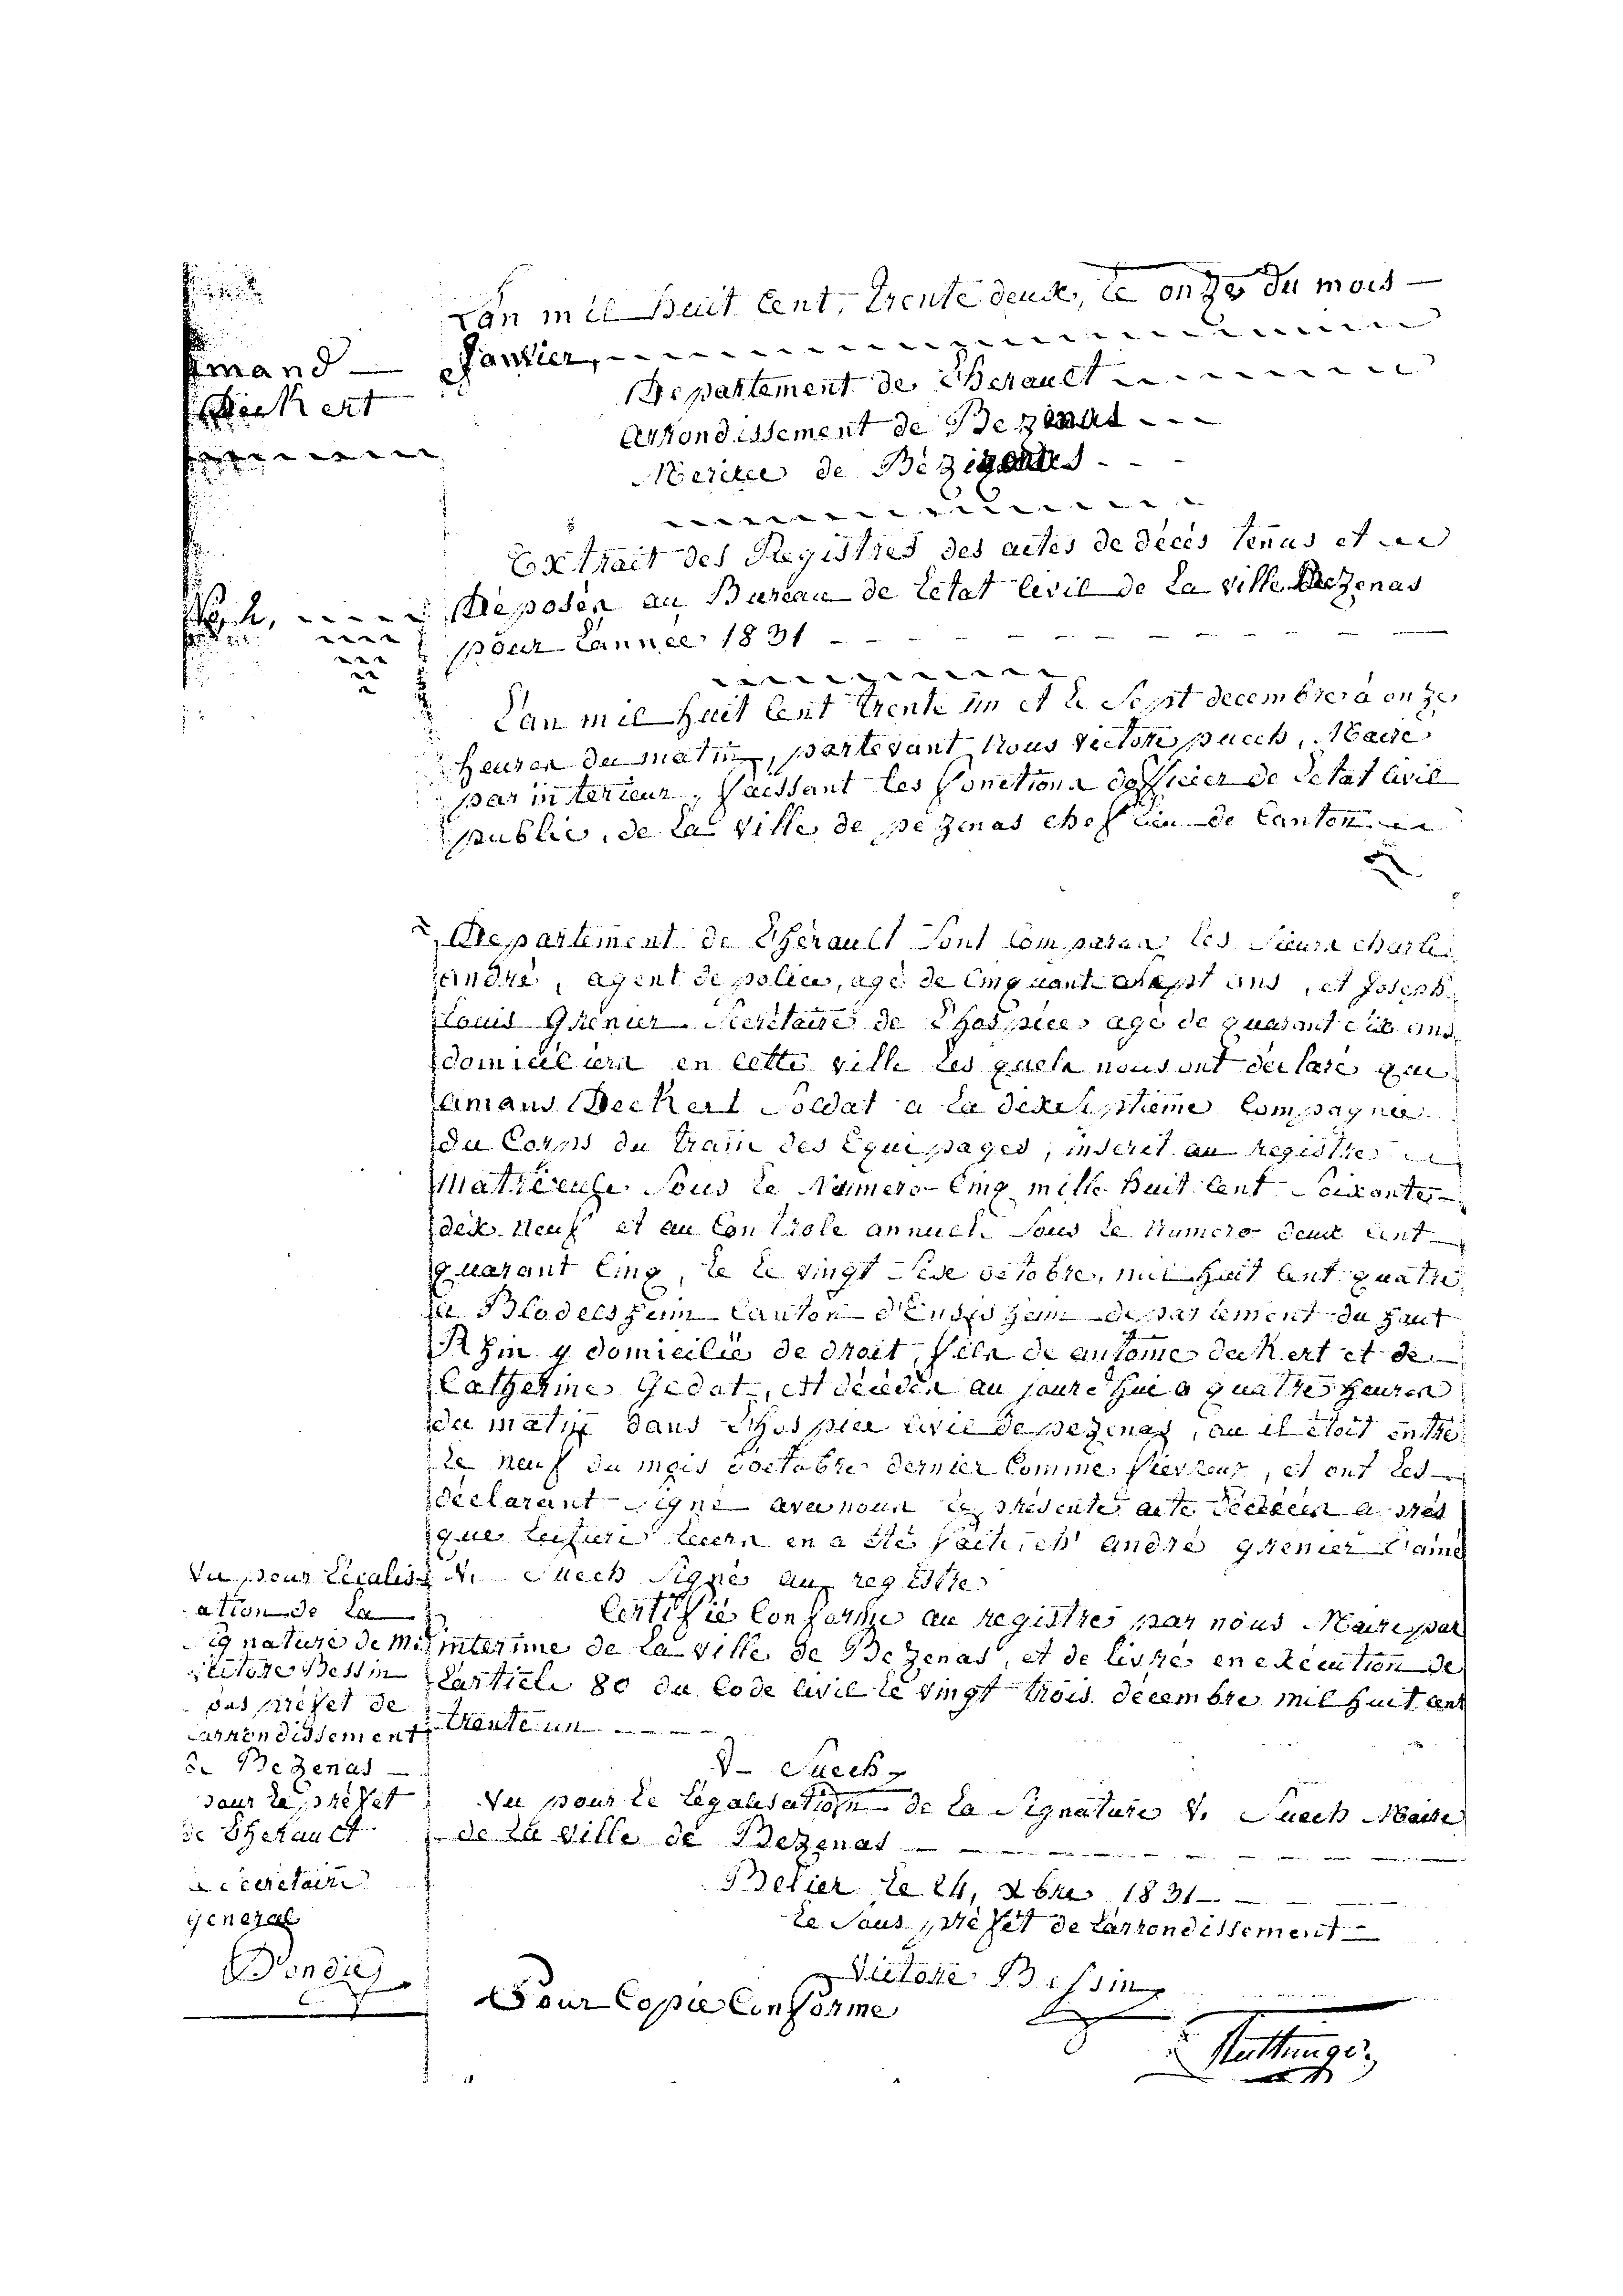 Lan mil huit Cent, trente deux, le onze du mois
Janvier,
amand
Deckert
Departement de Lherault
Arrondissement de Bezenas
Meriee de Bezenas
Extrait des Registres des actes de décès tenus et
No 2, Déposén au Bureau de Letat Civil de La ville Bezenas
pour Lannee 1831
Lan mil huit Cent trente un et le Sept decembre a onze
heuren du matin, partevant Nous victore puech, Maire
par interieur, faissant les fonctionn dofficier de Letat Civil
public, de La ville de pezenas chef lieu de Canton
Departement de Lherault Sont Comparan les Sieurn charle
andre, agent de police, age de Cinquant sept ans, et Joseph
Louis Grenier Secretaire de Lhospice age de quarant six ans
domicilien en Cette ville les queln nous ont declare que
amans Deckert Soldat a La dixseptieme Compagnie
du Corps du train des Equipages, inscrit au Registre
Matricule Sous Le Numero Cinq mille huit Cent Soixante
dix neuf et au Controle annuel Sous Le Numero deux Cent
quarant Cinq, le vingt octobre, mil huit Cent quatre
a Blodelsheim Canton d'Ensisheim departement du haut
Rhin y domicilie de droit, filn de antome deckert et de
Catherine Gedat, est deceden au jourdhui a quatre heuren
du matin dans Lhospice Civil de pezenas, ou il étoit entre
le neuf du mois doctobre dernier Comme fievreux, et ont les
declarant Signe avec noun le presente acte a pres
que lecture en a ete faite, ch andre grenier Laine
V. Suech Signes au registre
Certifie Conforme au registre par nous Maire par
interime de La ville de Bezenas, et de livre en execution de
Larticle 80 du Code Civil le vingt trois decembre mil huit Cent
trente un
V. Suech
Vu pour Le Legalisation de La Signature V. Suech Maire
de La ville de Bezenas
Belier le 24, xbre 1831
Le Sous préfet de Larrondissement
Victore Bessin
Vu pour Lécalis
ation de La
Signature de Mr
Victore Bessin
Sous préfet de
Larrondissement
de Bezenas
pour Le préfet
de Lherault
Le Secretaire
General
Bondie
Pour Copie Conforme